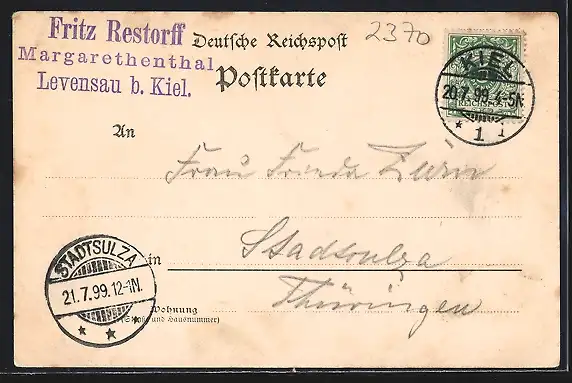 Fritz Restorff
Margarethenthal
Levensau b. Kiel.
Deutsche Reichspost
Postkarte
2370
KIEL
20.7.99.4-5N
REICHSPOST
* 1 i
An
Frau Frieda
Stadtsulza
in
Thüringen
STADTSULZA
21.7.99.12-1N.
* * *
Wohnung
(Straße und Hausnummer)